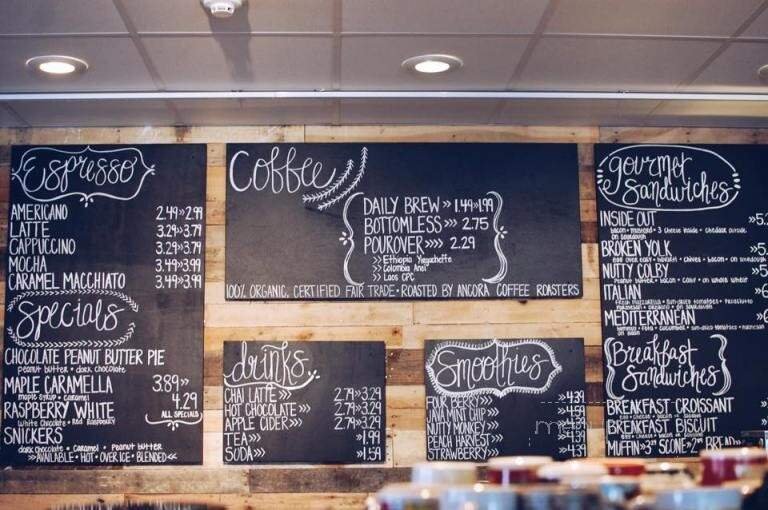 Espresso
AMERICANO 2.49»2.99
LATTE 3.29»3.79
CAPPUCCINO 3.29»3.79
MOCHA 3.49»3.99
CARAMEL MACCHIATO 3.49»3.99
Specials
CHOCOLATE PEANUT BUTTER PIE
peanut butter • dark chocolate
MAPLE CARAMELLA 3.89»
maple syrup • caramel 4.29
RASPBERRY WHITE ALL SPECIALS
White Chocolate • Red Raspberry
SNICKERS
dark chocolate • Caramel • Peanut butter
»AVAILABLE • HOT • OVER ICE • BLENDED«
Coffee
DAILY BREW » 1.49»1.99
BOTTOMLESS »» 2.75
POUROVER »» 2.29
»» Ethiopia
»» Colombia
»» Laos CPC
100% ORGANIC, CERTIFIED FAIR TRADE • ROASTED BY ANCORA COFFEE ROASTERS
drinks
CHAI LATTE »» 2.79»3.29
HOT CHOCOLATE »» 2.79»3.29
APPLE CIDER »» 2.79»3.29
TEA »» 1.99
SODA »» 1.59
Smoothies
BERRY »» 4.39
JAVA MINT CHIP »» 4.59
NUTTY MONKEY
PEACH HARVEST »» 4.39
STRAWBERRY »» 4.39
Gourmet
Sandwiches
INSIDE OUT »5.
bacon • mustard • 3 cheese inside • cheddar outside
on sourdough
BROKEN YOLK
on sourdough
NUTTY COLBY »5.
Peanut butter • bacon • colby on whole wheat
ITALIAN »6
fresh mozzarella • sun-dried tomatoes • prosciutto
MEDITERRANEAN
hummus • feta • cucumber • sun-dried tomatoes
Breakfast
Sandwiches
BREAKFAST CROISSANT
Egg • Cheese • bacon or sausage
BREAKFAST BISCUIT
Egg • Cheese • bacon or sausage
MUFFIN » SCONE » BREAD